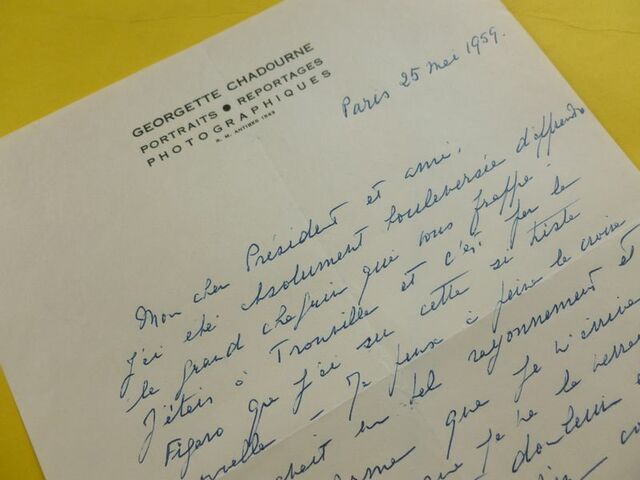 GEORGETTE CHADOURNE
PORTRAITS • REPORTAGES
PHOTOGRAPHIQUES
R. M. ANTIBES 1949
Paris 25 mai 1959.
Mon cher Président et ami,
J'ai été absolument bouleversée d'apprendre
le grand chagrin qui vous frappe !
J'étais à Trouville et c'est par le
Figaro que j'ai su cette si triste
nouvelle – Je peux à peine le croire
un tel rayonnement et
que je n'arrive
que je ne la verrai
douleur